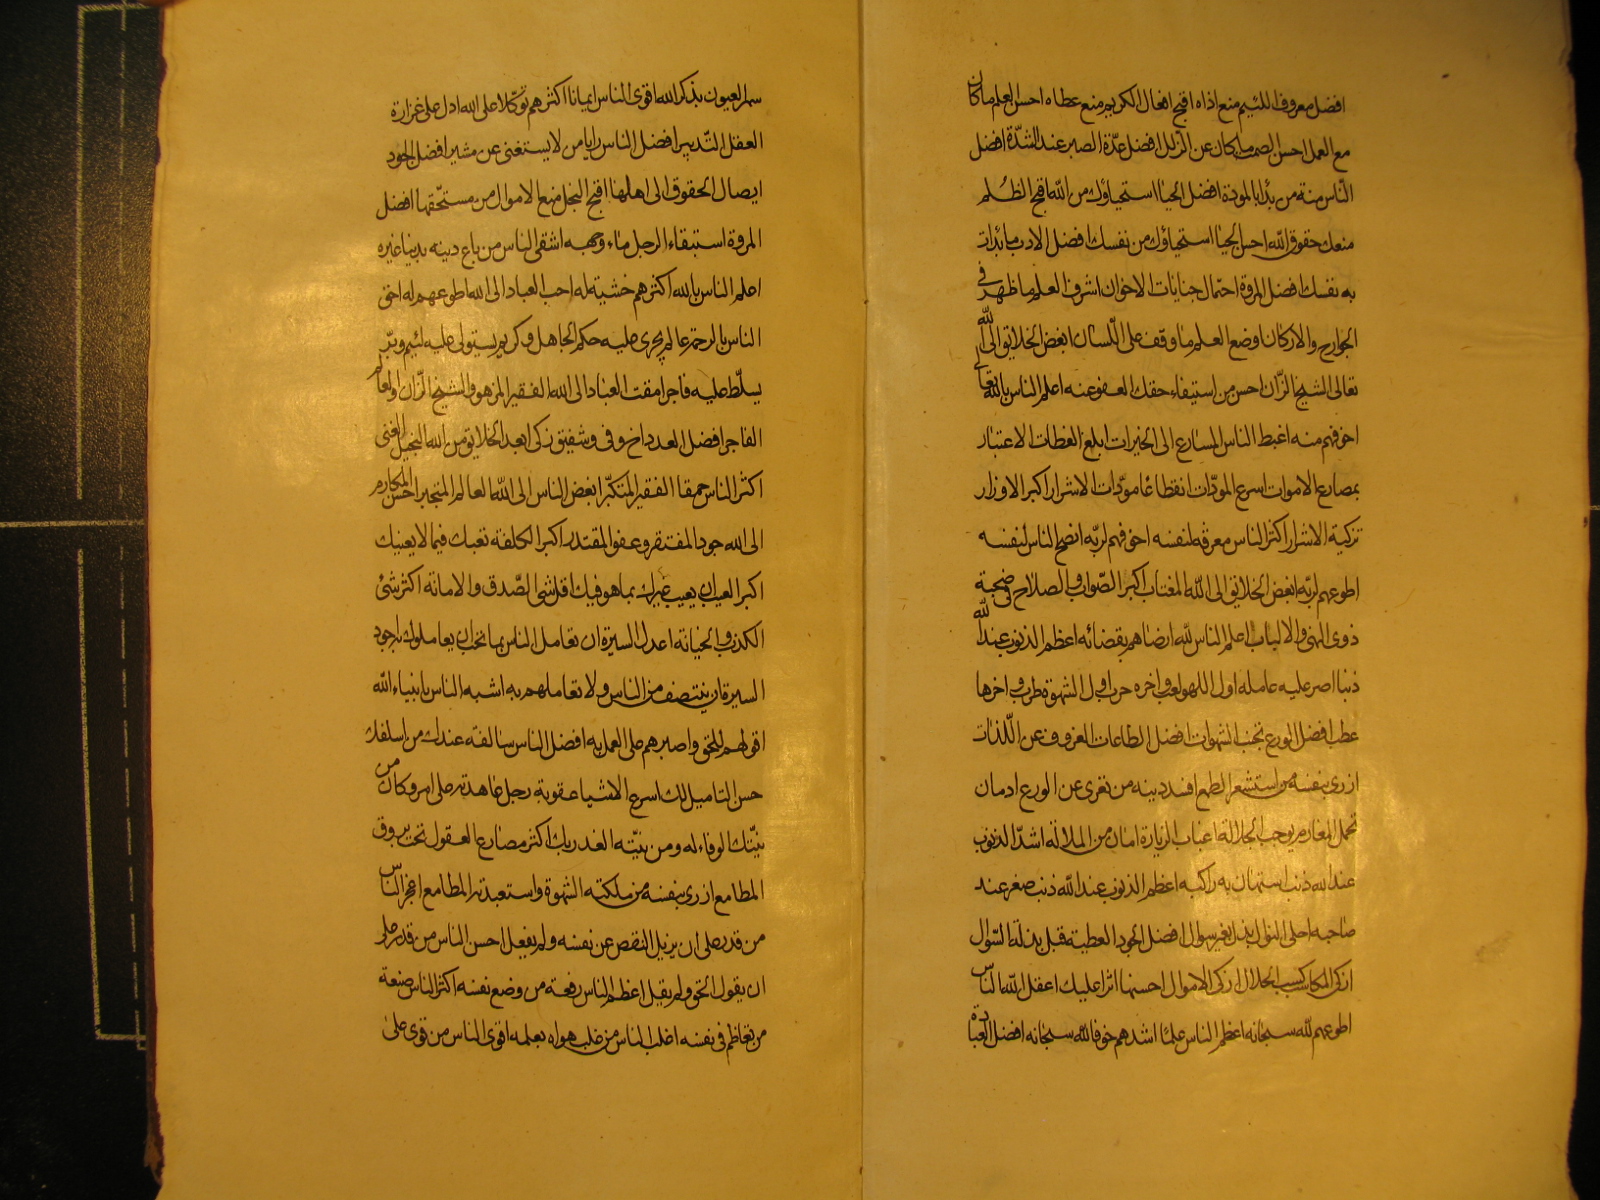 افضل معروف اللئيم منع اذاه اقبح افعال الكريم منع عطاه احسن العلم ماكان
مع العمل احسن الصمت ماكان عن الزلل افضل عدّة الصبر عند الشدّة افضل
النّاس منة من بدأ بالمودة افضل الحياا استحياؤك من الله اقبح الظُلم
منعك حقوق الله احسن الحياا استحياؤك من نفسك افضل الادب ما بدأت
به نفسك افضل المروة احتمال جنايات الاخوان اشرف العلم ما ظهر فى
الجوارح والاركان اوضع العلم ما وقف على اللّسان ابغض الخلايق الى الله
تعالى الشيخ الزّان احسن من استيفاء حقك العفو عنه اعلم الناس بالله تعالى
اخوفهم منه اغبط الناس المسارع الى الخيرات ابلغ العظات الاعتبار
بمصارع الاموات اسرع المودّات انقطاعا مودّات الاشرار اكبر الاوزار
تزكية الاشرار اكثر الناس معرفة لنفسه اخوفهم لربّه انصح الناس لنفسه
اطوعهم لربّه ابغض الخلايق الى الله المغتاب اكبر الصّواب والصلاح فى صحبة
ذوى النهى والالباب اعلم الناس لله ارضاهم بقضائه اعظم الذنوب عند الله
ذنبا اصر عليه عامله اول اللهو لعب واخره حرب اول الشهوة طرب واخرها
عطب افضل الورع تجنب الشهوات افضل الطاعات العزوف عن اللّذات
ازرى بنفسه من استشعر الطمع افسد دينه من تعرى عن الورع ادمان
تحمل المغارم يوجب الجلالة اغباب الزيارة امان من الملالة اشدّ الذنوب
عند الله ذنب استهان به راكبه اعظم الذنوب عند الله ذنب صغر عند
صاحبه احلى النوال بذل بغير سوال افضل الجود العطية قبل بذلة السّوال
ازكى المكاسب كسب الحلال ازكى الاموال احسنها اثرا عليك اعقل الله النّاس
اطوعهم لله سبحانه اعظم الناس علما اشدهم خوفا لله سبحانه افضل العبادة
سهر العيون بذكر الله اقوى الناس ايمانا اكثرهم توكّلا على الله ادل على غزارة
العقل التّدبير افضل الناس رايا من لا يستغنى عن مشير افضل الجود
ايصال الحقوق الى اهلها اقبح البخل منع الاموال من مستحّقها افضل
المروة استبقاء الرجل ماء وجهه اشقى الناس من باع دينه بدنيا غيره
اعلم الناس بالله اكثرهم خشية له احب العباد الى الله اطوعهم له احق
الناس بالرحمة عالم يجرى عليه حكم الجاهل وكريم يستولى عليه لئيم وبرّ
يسلّط عليه فاجر امقت العباد الى الله الفقير المزهو والشيخ الزّان والعالم
الفاجر افضل العدد اخ وفى وشفيق زكى ابعد الخلايق من الله البخيل الغنى
اكثر الناس حمقا الفقير المتكبّر ابغض الناس الى الله العالم المتجبر احسن المكارم
الى الله جود المفتقر وعفو المقتدر اكبر الكلفة تعبك فيما لا يعنيك
اكبر العيب ان يعيب غيرك بما هو فيك اقل شى الصّدق والامانة اكثر شئ
الكذب والخيانة اعدل السيرة ان تعامل الناس بما تحب ان يعاملوك به اجود
السيرة ان ينتصف من الناس ولا تعاملهم به اشبه الناس بانبياء الله
اقولهم للحق واصبرهم على العمل به افضل الناس سالفة عندك من اسلفك
حسن التاميل لك اسرع الاشيا عقوبة رجل عاهدته على امر وكان من
نيّتك الوفاء له ومن نيّته الغدر بك اكثر مصارع العقول تحت بروق
المطامع ازرى بنفسه من ملكته الشهوة واستعبدته المطامع اعجز الناس
من قدر على ان يزيل النقص عن نفسه ولم يفعل احسن الناس من قدر على
ان يقول الحق ولم يقل اعظم الناس رفعة من وضع نفسه اكثر الناس ضعة
من تعاظم فى نفسه اغلب الناس من غلب هواه بعلمه اقوى الناس من قوى على